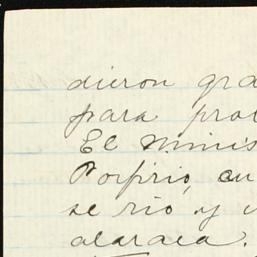 dieron gra
para pro
El minis
Porfirio, cu
se rió y